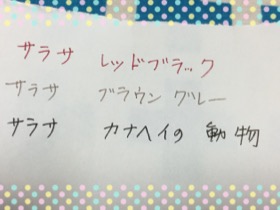 サラサ レッドブラック
サラサ ブラウン グレー
サラサ カナヘイの 動物